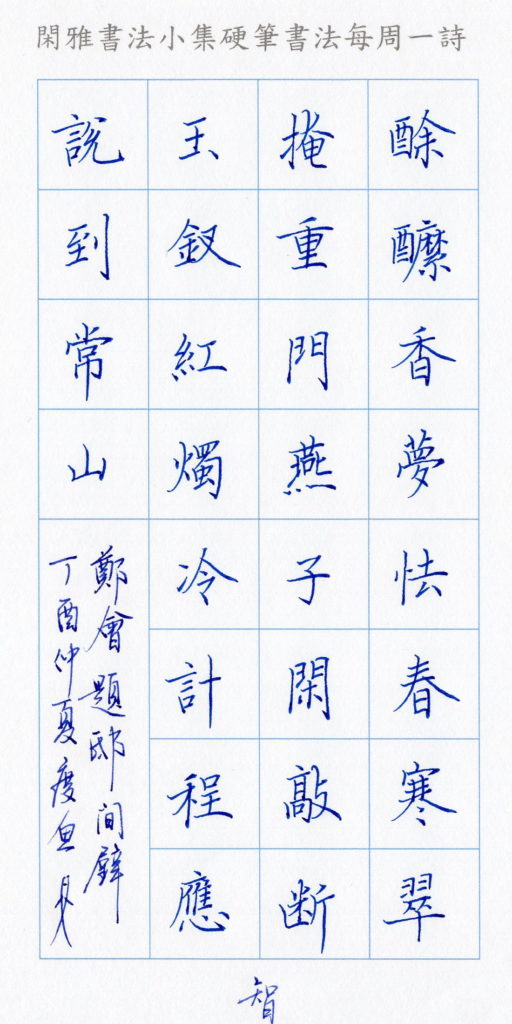 閑雅書法小集硬筆書法每周一詩
酴醿香夢怯春寒翠
掩重門燕子閑敲断
玉釵紅燭冷計程應
説到常山
鄭會題邸間壁
丁酉仲夏度魚
智